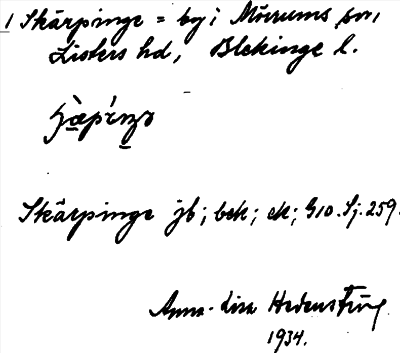 1 Skärpinge = by i Mörrums sn,
Listers hd, Blekinge l.
Skärpinge jb; bek; ek; G10. Sj. 259.
Anna-Lisa Hedenström
1934.